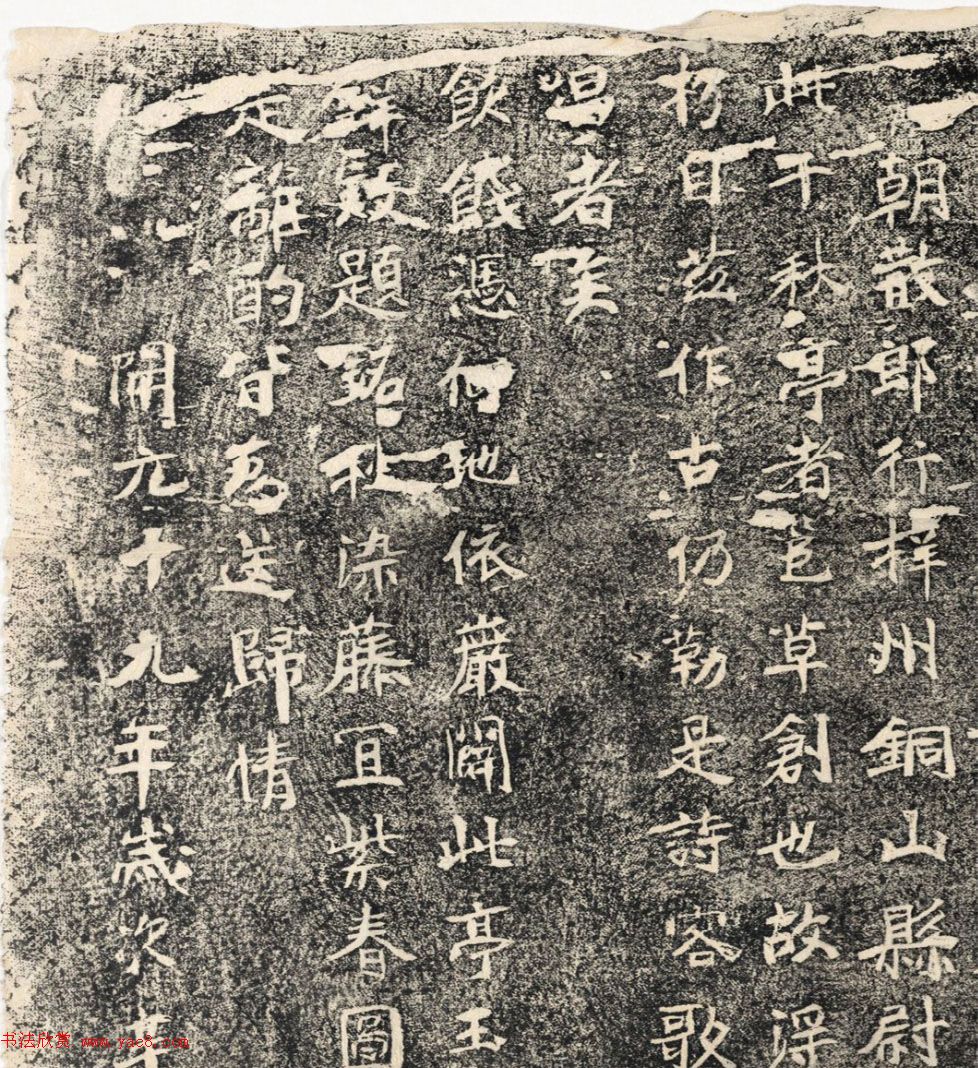 朝散郎行梓州銅山縣尉
此千秋亭者邑草創也故淂
茲作古仍勒是詩客歌
唱者矣
飲餞憑何地依巖闢此亭玉
題染藤冝紫春圖
離酌皆為送歸情
開元十九年歲次辛
书法欣赏 www.yac8.com